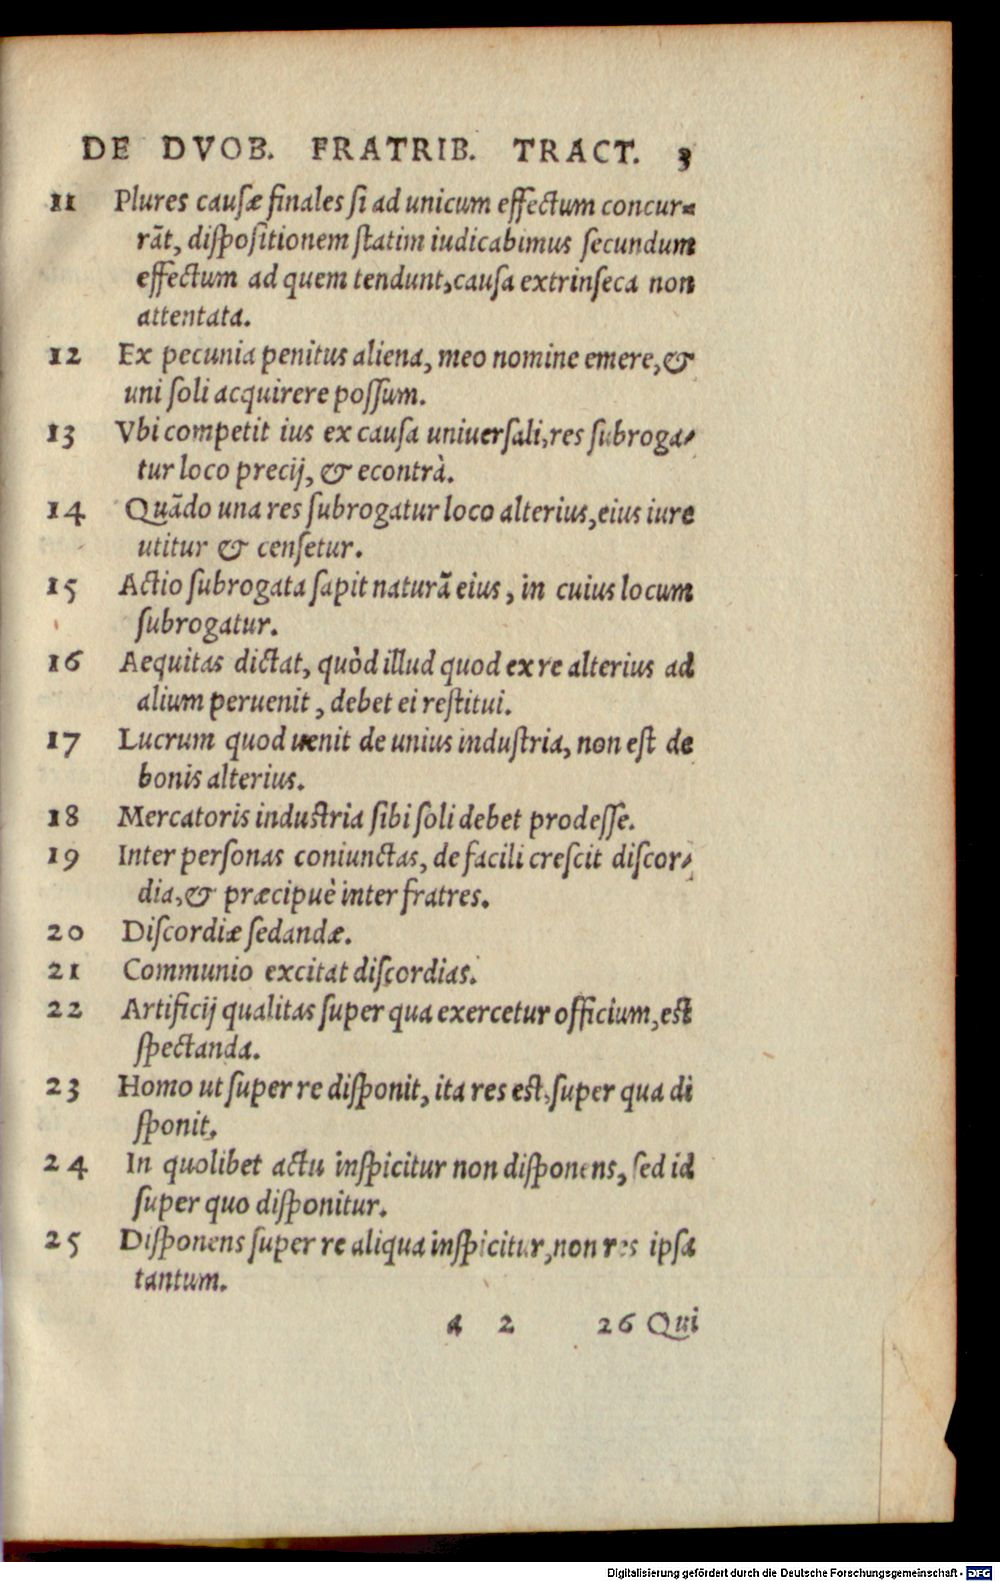 DE DVOB. FRATRIB. TRACT. 3
11 Plures causæ finales si ad unicum effectum concur-
rãt, dispositionem statim iudicabimus secundum
effectum ad quem tendunt, causa extrinseca non
attentata.
12 Ex pecunia penitus aliena, meo nomine emere, &
uni soli acquirere possum.
13 Vbi competit ius ex causa uniuersali, res subroga-
tur loco precij, & econtrà.
14 Quãdo una res subrogatur loco alterius, eius iure
utitur & censetur.
15 Actio subrogata sapit naturã eius, in cuius locum
subrogatur.
16 Aequitas dictat, quòd illud quod ex re alterius ad
alium peruenit, debet ei restitui.
17 Lucrum quod uenit de unius industria, non est de
bonis alterius.
18 Mercatoris industria sibi soli debet prodesse.
19 Inter personas coniunctas, de facili crescit discor-
dia, & præcipuè inter fratres.
20 Discordiæ sedandæ.
21 Communio excitat discordias.
22 Artificij qualitas super qua exercetur officium, est
spectanda.
23 Homo ut super re disponit, ita res est, super qua di
sponit.
24 In quolibet actu inspicitur non disponens, sed id
super quo disponitur.
25 Disponens super re aliqua inspicitur, non res ipsa
tantum.
A 2 26 Qui
Digitalisierung gefördert durch die Deutsche Forschungsgemeinschaft - DFG